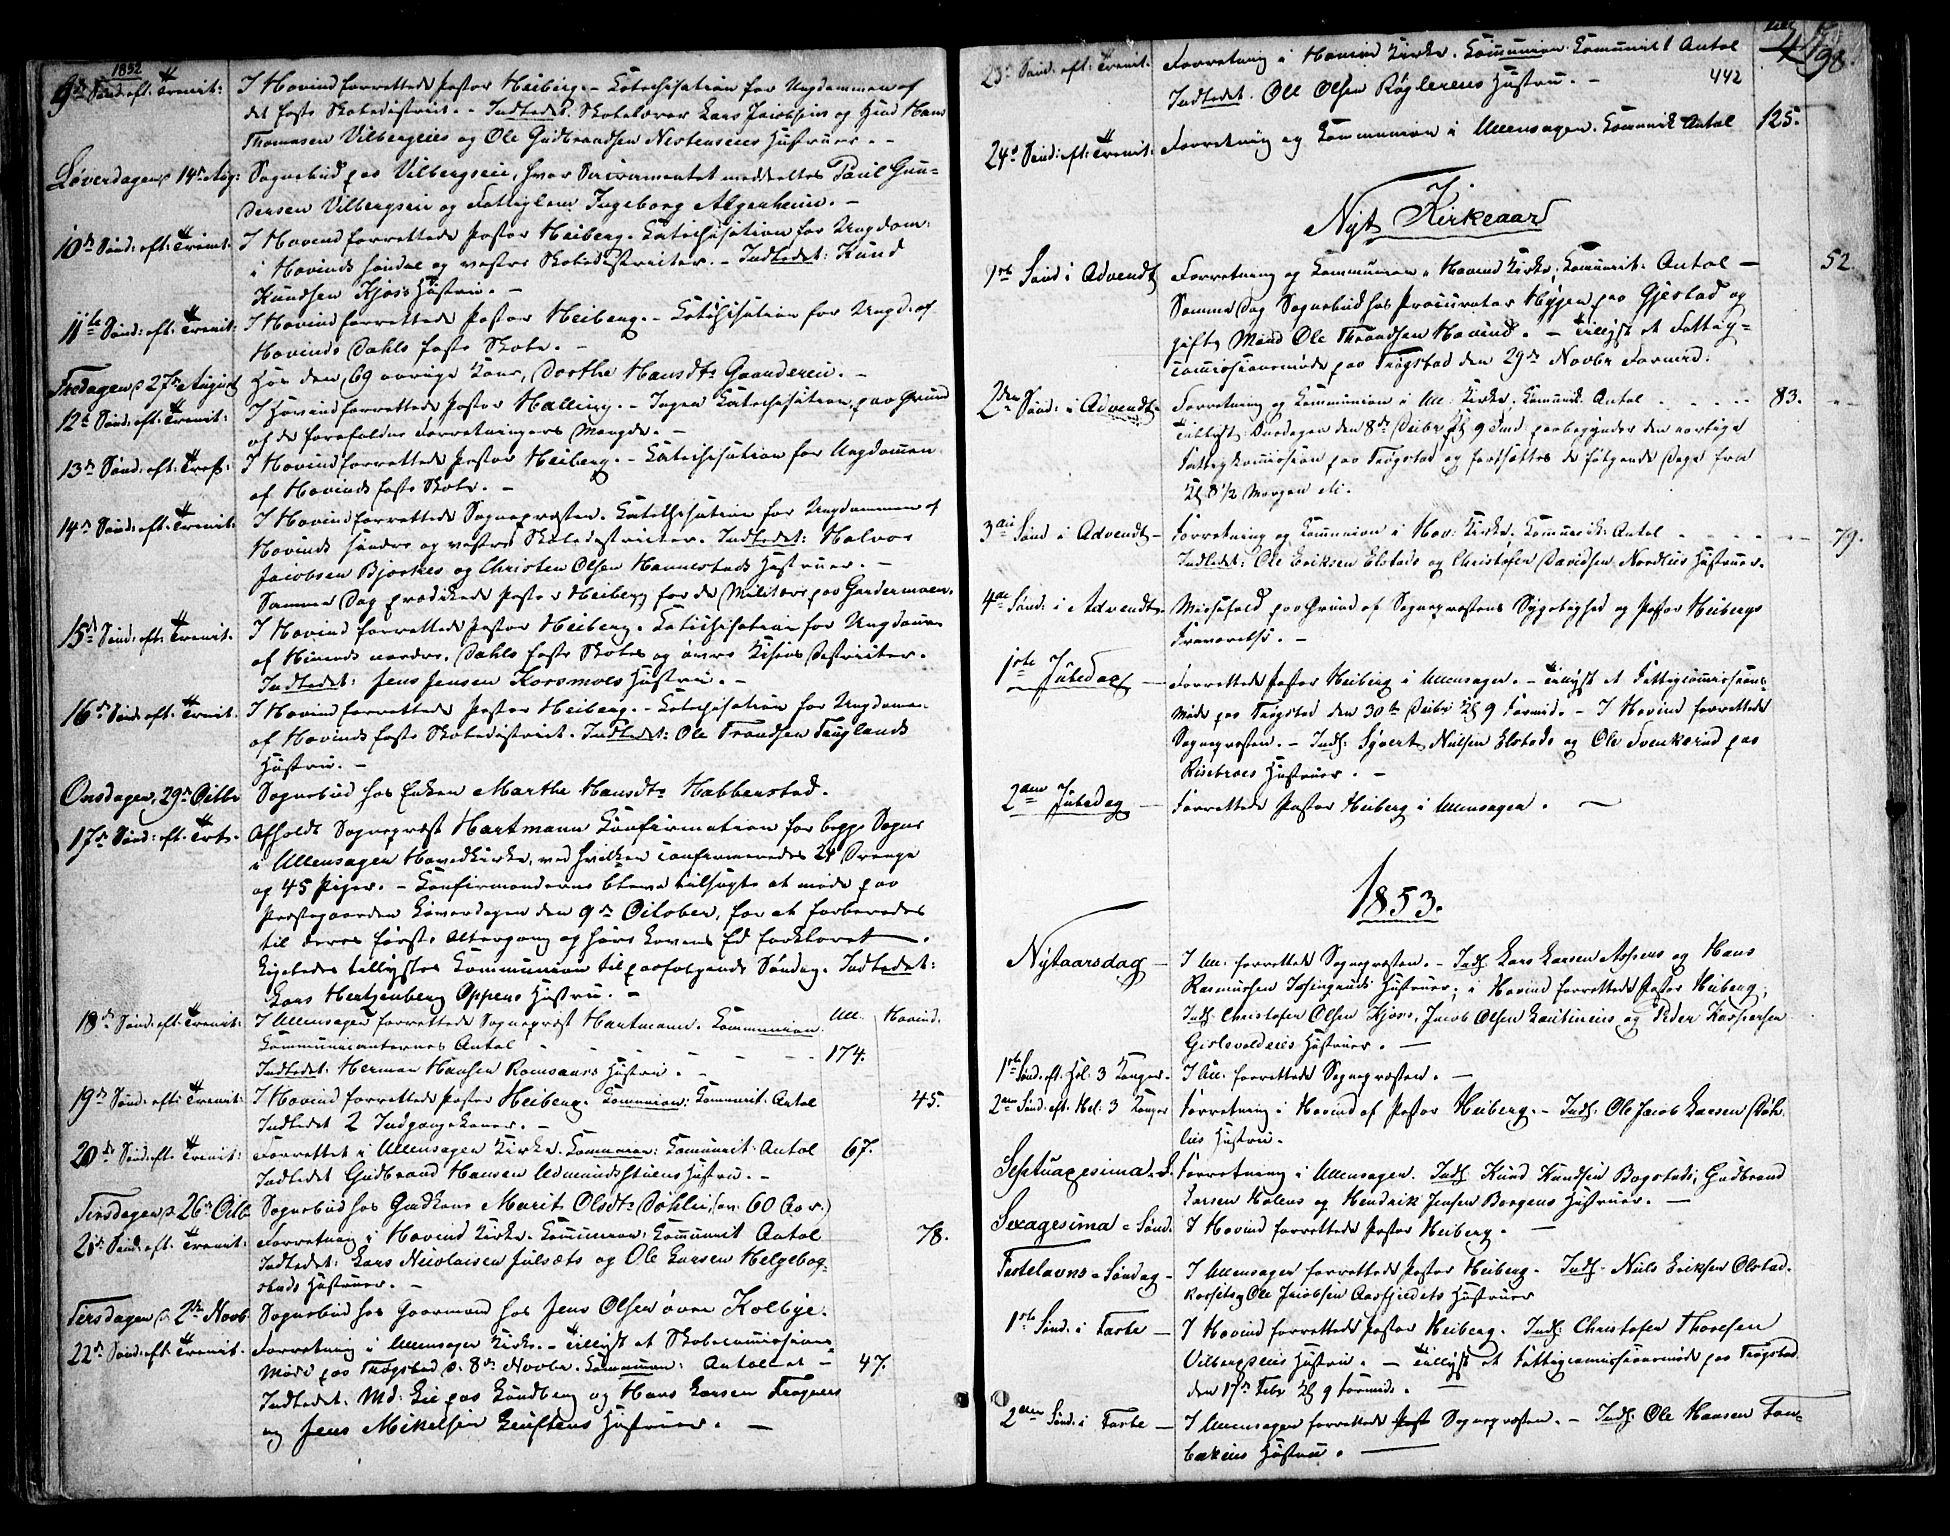 1852
9de Sönd: eft: Trinit: I Hovind forrettede Pastor Heiberg. – Catechisation for Ungdommen af
det faste Skoledistrict. – Indledet: Skolelærer Lars Jacobsens og Hmd Hans
Thomasen Vilbergeies og Ole Gudbrandsen Nestenseies Hustruer. –
Löverdagen, 14de Aug: Sognebud paa Vilbergseie, hvor Sacramentet meddeeltes Poul Gun-
dersen Vilbergseie og Fattiglem Ingeborg Algerheim. –
10de Sönd: eft: Trinit: I Hovind forrettede Pastor Heiberg. Catechisation for Ungdom:
i Hovinds söndre og vestre Skoledistricter. – Indledet: Knud
Knudsen Kjos's Hustru. –
11te Sönd: eft: Trinit: I Hovind forrettede Pastor Heiberg. – Catechisation for Ungd: af
Hovinds Dahls faste Skole. –
Fredagen, 27de August Hos den 69 aarige Kone, Dorthe Hansdtr Gaardereie. –
12te Sönd: eft: Trinit: I Hovind forrettede Pastor Halling. – Ingen Catechisation, paa Grund
af de forefaldne Forretningers Mængde. –
13de Sönd: eft: Tref: I Hovind forrettede Pastor Heiberg. – Catechisation for Ungdommen
af Hovinds faste Skole. –
14de Sönd: eft: Trinit: I Hovind forrettede Sognepræsten. Catechisation for Ungdommen af
Hovinds söndre og vestre Skoledistricter. Indledet: Halvor
Jacobsen Bjerkes og Christen Olsen Hannestads Hustruer. –
Samme Dag prædikede Pastor Heiberg for de Militære paa Gardermoen.
15de Sönd: eft: Trinit. I Hovind forrettede Pastor Heiberg. Catechisation for Ungdomm
af Hovinds nordre, Dahls faste Skoles og övre Kisens Districter.
Indledet: Jens Jensen Korsmoes Hustru. –
16de Sönd: eft: Trinit. I Hovind forrettede Pastor Heiberg. – Catechisation for Ungdomm
af Hovinds faste Skoledistrict. Indledet: Ole Trondsen Fuglands
Hustru. –
Onsdagen, 29de Octbr Sognebud hos Enken Marthe Hansdtr Habberstad.
17de Sönd: eft: Trt. Afholdt Sognepræst Hartmann Confirmation for begge Sogne
i Ullensager Hovedkirke, ved hvilken confirmeredes 24 Drenge
og 45 Piger. – Confirmanderne bleve tilsagte at möde paa
Præstegaarden Löverdagen den 9de October, for at forberedes
til deres förste Altergang og höre Lovens Ed forklaret.
Ligeledes tillystes Communion til paafölgende Söndag. Indledet:
Lars Hertzenberg Oppens Hustru. –
18de Sönd: eft: Trinit: I Ullensager forrettede Sognepræst Hartmann. Communion. Ull. Hovind.
Communicanternes Antal 174.
Indledet: Herman Hansen Ramsaas Hustru. –
19de Sönd: eft: Trinit: I Hovind forrettede Pastor Heiberg. Communion: Communic: Antal 45.
Indledet 2 Indgangskoner. –
20de Sönd: eft: Trinit: Forrettet i Ullensager Kirke. Communion: Communic: Antal 67.
Indledet Gudbrand Hansen Udmundstuens Hustru. –
Tirsdagen, 26de Octb Sognebud hos Gaardkone Marit Olsdtr Döhli (over 60 Aar.)
21de Sönd: eft: Trinit: Forretning i Hovind Kirke. Communion: Communic Antal 78.
Indledet: Lars Nicolaisen Julsæts og Ole Larsen Helgebog-
stads Hustruer. –
Tirsdagen, 2de Novb. Sognebud hos Gaarmand hos Jens Olsen övre Kolbye.
22de Sönd: eft: Trinit. Forretning i Ullensager Kirke. – Tillyst et Skolecommissions-
Möde paa Trögstad d. 8de Novbr. Communion: Antallet – 47.
Indledet: Md: Lie paa Lundberg og Hans Larsen Trögners
og Jens Mikelsen Leuftens Hustruer. –
498
23de Sönd: eft: Trinit. Forretning i Hovind Kirke. Communion. Communic! Antal
442
Indledet. Oll Olsen Röglereies Hustru. –
24de Sönd: eft: Trinit: Forretning og Communion i Ullensager. Communic Antal 125.
Nyt Kirkeaar
1ste Sönd i Advendt Forretning og Communion i Hovind Kirke, Communic: Antal – 52.
Samme Dag Sognebud hos Procurator Höyen paa Gjestad og
gift Mand Ole Throndsen Hovind. – Tillyst et Fattig-
commissionsmöde paa Trögstad den 29de Novbr Formid:
2den Sönd: i Advendt. Forretning og Communion i Ull. Kirke. Communic: Antal . . . . . 83.
Tillyst: Onsdagen den 8de Decbr Kl 9 Fmd paabegynder den aarlige
Fattigkommission paa Trögstad og fortsættes de fölgende Dage fra
Kl 8 1/2 Morgen etc.
3die Sönd i Advendt – Forretning og Communion i Hov: Kirke. Communic: Antal 79.
Indledet: Ole Eriksen Elstads og Christofer Davidsen Nordlies Hustruer.
4de Sönd: i Advendt. Messefald paa Grund af Sognepræstens Sygelighed og Pastor Heibergs
Fraværelse. –
1ste Juledag – Forrettede Pastor Heiberg i Ullensager. – Tillyst et Fattigcommissions-
Möde paa Trögstad den 30te Decbr Kl 9 Formid. – I Hovind forrettede
Sognepræsten. – Indl: Syvert Nielsen Elstads og Ole Svenkerud paa
Risebroes Hustruer. –
2den Juledag – Forrettede Pastor Heiberg i Ullensager. –
1853.
Nytaarsdag – I Ull. forrettede Sognepræsten. – Indl: Lars Larsen Aspens og Hans
Rasmussen Isingruds Hustruer; i Hovind forrettede Pastor Heiberg,
Indl. Christofer Olsen Kjoss, Jacob Olsen Lautineies og Peder Kaspersen
Gislevoldeies Hustruer. –
1ste Sönd. eft. Hel: 3 Konger. I Ull. forrettede Sognepræsten. –
2den Sönd. eft. Hel: 3 Konger Forretning i Hovind af Pastor Heiberg. – Indl: Ole Jacob Larsen Döh
lies Hustru.
Septuagesima. S. Forretning i Ullensager. Indl. Knud Knudsen Bogstads, Gudbrand
Larsen Holens og Hendrik Jensen Borgens Hustruer. –
Sexagesima = Sönd. I Hovind forrettede Pastor Heiberg. –
Fastelavns = Söndag – I Ullensager forrettede Pastor Heiberg. Indl. Niels Eriksen Olstad-
 og Ole Jacobsen Hustruer
1ste Sönd. i Faste – I Hovind forrettede Pastor Heiberg. Indl: Christofer Thoresen
Vilbergseies Hustru. – Tillyst et Fattigcommissionsmöde paa Trögstad
den 17de Febr Kl 9 Formid. –
2den Sönd. i Faste – I Ullensager forrettede Past Sognepræsten. – Indl: Ole Hansen Fon-
bækeies Hustru. –